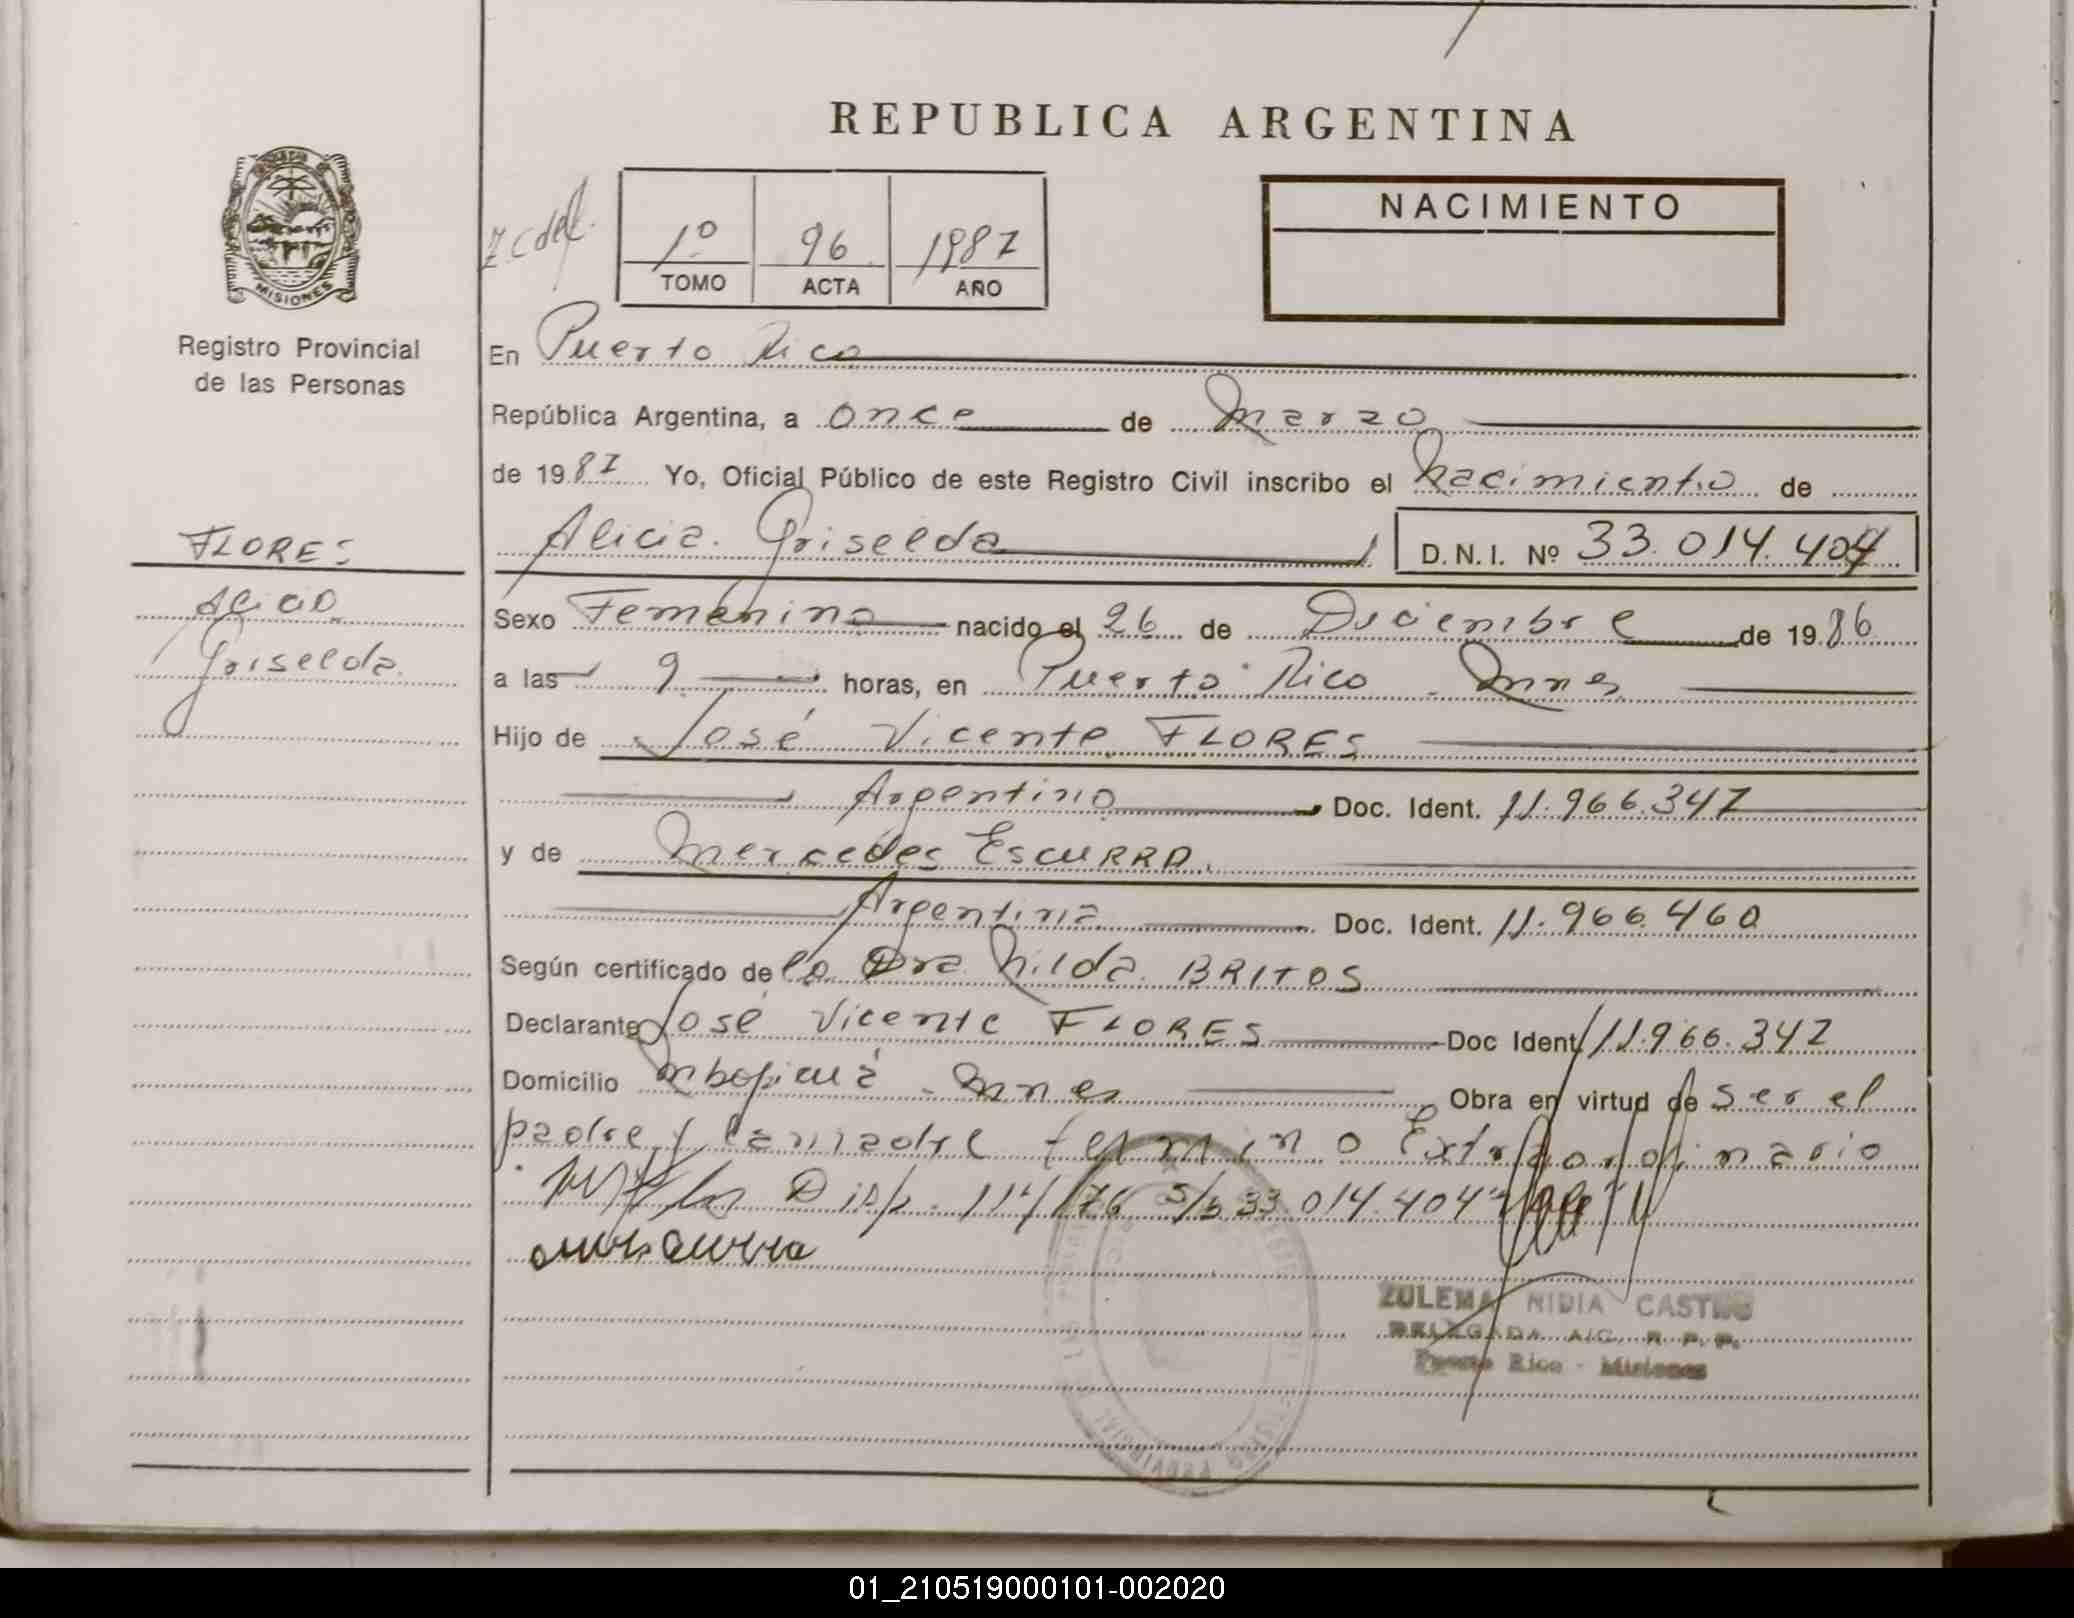 REPUBLICA ARGENTINA
MISIONES
Registro Provincial
de las Personas
1º 96 1987
TOMO ACTA AÑO
NACIMIENTO
En Puerto Rico
República Argentina, a once de Marzo
de 1987 Yo, Oficial Público de este Registro Civil inscribo el Nacimiento de
Alicia Griselda D.N.I. Nº 33.014.404
FLORES
Alicia
Griselda
Sexo Femenino nacido el 26 de Diciembre de 1986
a las 9 horas, en Puerto Rico - Mnes
Hijo de José Vicente FLORES
Argentino Doc. Ident. 11.966.347
y de Mercedes EscuRRA
Argentina Doc. Ident. 11.966.460
Según certificado de la Dra Nilda BRITOS
Declarante José Vicente FLORES Doc Ident 11.966.347
Domicilio Mbopicuá - Mnes Obra en virtud de ser el
padre y la madre termino Extraordinario
Disp. 114/76 S/b 33.014.404
ZULEMA NIDIA CASTRO
DELEGADA A/C. R. P. P.
Puerto Rico - Misiones
01_210519000101-002020